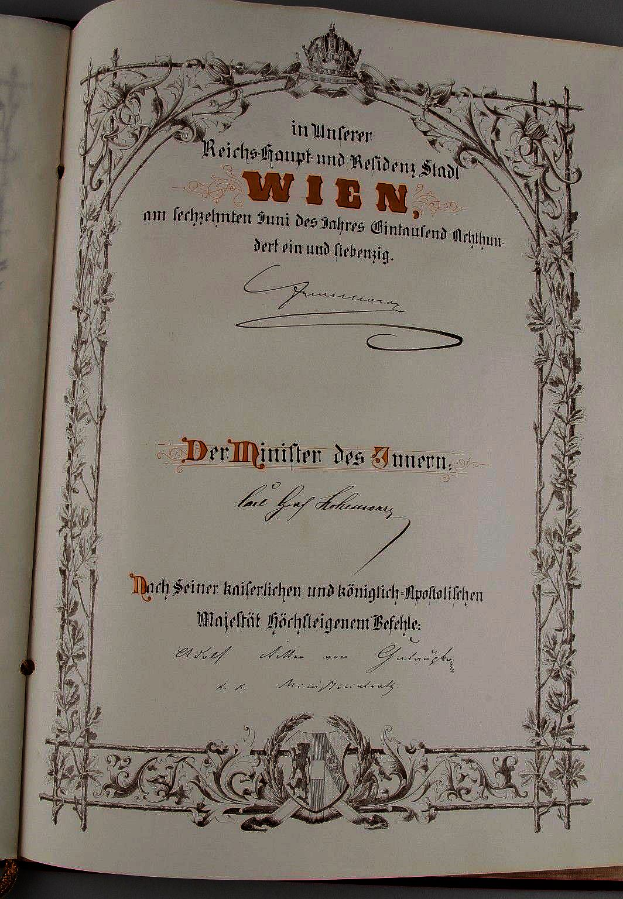 in Unserer
Reichs-Haupt und Residenz Stadt
WIEN,
am sechzehnten Juni des Jahres Eintausend Achthun-
dert ein und siebenzig.
Der Minister des Innern:
Carl Graf Hohenwart
Nach Seiner kaiserlichen und königlich-Apostolischen
Majestät Höchsteigenem Befehle:
Adolf Ritter von
k. k. Ministerialrath